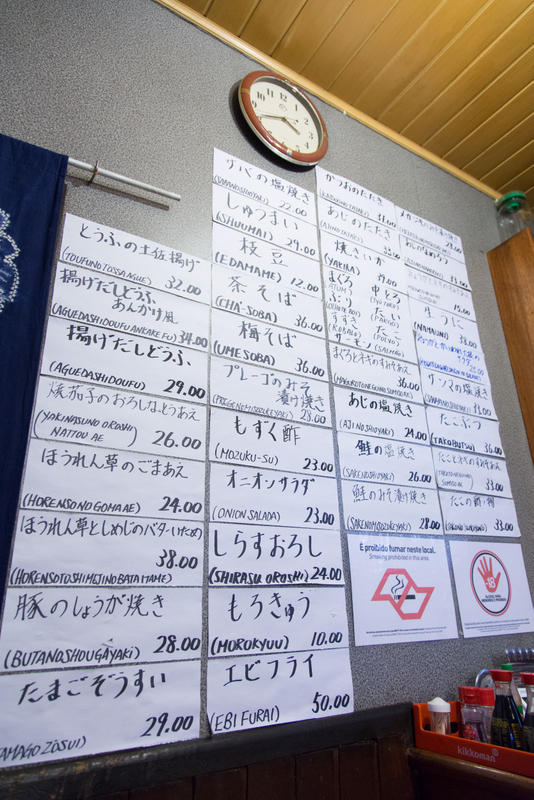 とうふの土佐揚げ
(TOUFUNOTOSSAGUE) 32.00
揚げだしどうふ
あんかけ風
(AGUEDASHIDOUFU ANKAKE FU) 34.00
揚げだしどうふ
(AGUEDASHIDOUFU) 29.00
焼茄子のおろしなっとうあえ
(YAKINASUNO OROSHI
NATTOU AE) 26.00
ほうれん草のごまあえ
(HORENSONO GOMA AE) 24.00
ほうれん草としめじのバターいため
38.00
(HORENSOTOSHIMEJINOBATA ITAME)
豚のしょうが焼き
28.00
(BUTANOSHOUGAYAKI)
たまごぞうすい
29.00
(TAMAGO ZOSUI)
サバの塩焼き
(SABANOSHIOYAKI) 22.00
しゅうまい
(SHUUMAI) 29.00
枝豆
(EDAMAME) 12.00
茶そば
(CHA-SOBA) 36.00
梅そば
(UME SOBA) 36.00
プレーゴのみそ
漬け焼き
23.00
もずく酢
(MOZUKU-SU) 23.00
オニオンサラダ
(ONION SALADA) 23.00
しらすおろし
(SHIRASU OROSHI) 24.00
もろきゅう
(MOROKYUU) 10.00
エビフライ
(EBI FURAI) 50.00
かつおのたたき
あじのたたき
焼きいか
(YAKIIKA) 19.00
まぐろ 中とろ
(ATUM)
ぶり たい
(PARGO)
すずき たこ
(ROBALO) (POLVO)
サーモン (SALMÃO)
まぐろとネギのすみそあえ
36.00
あじの塩焼き
(AJI NO SHIOYAKI) 24.00
鮭の塩焼き
(SAKENOSHIOYAKI) 26.00
鮭のみそ漬け焼き
(SAKENOMISOZUKEYAKI) 28.00
生うに
(NAMAUNI) 38.00
サンマの塩焼き
33.00
たこぶつ
(TAKOBUTSU) 36.00
たことネギのすみそあえ
33.00
たこの酢の物
33.00
É proibido fumar neste local.
Smoking prohibited in this area.
-18
kikkoman